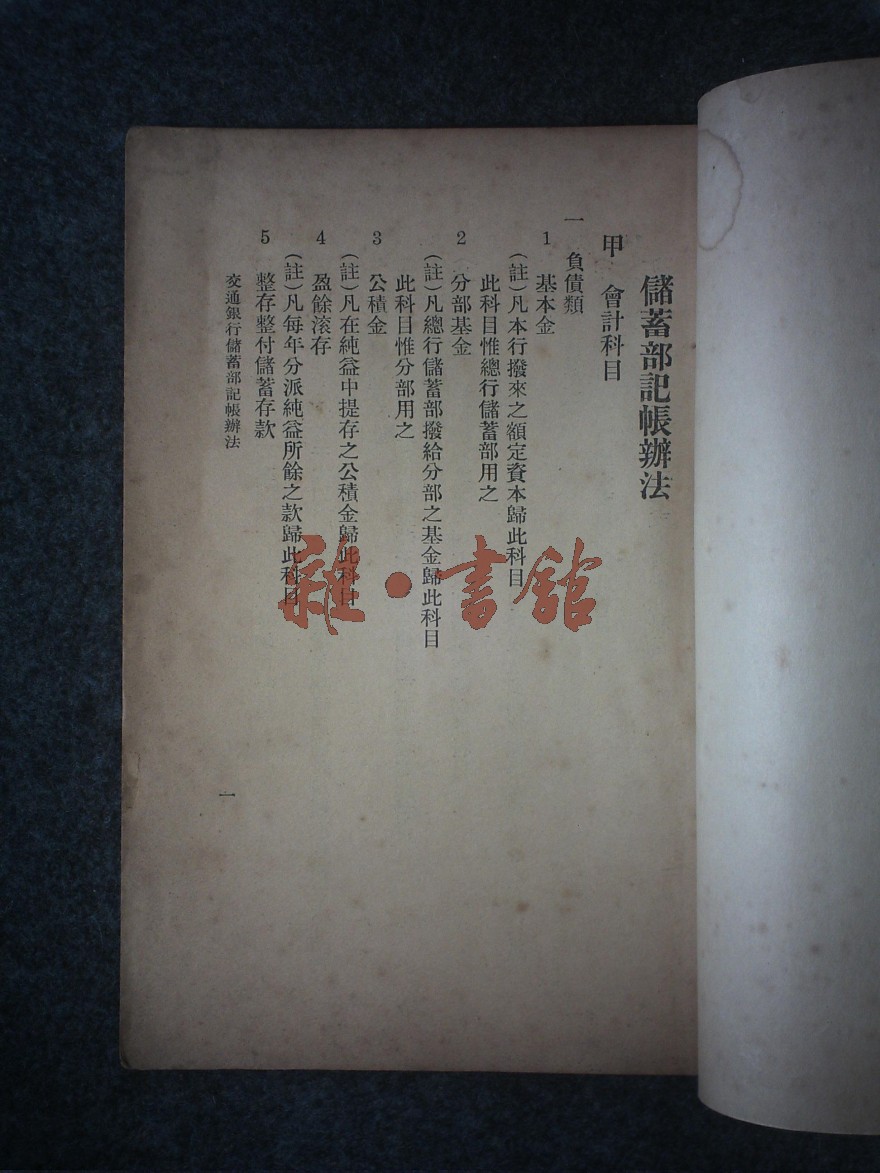 儲蓄部記帳辦法
甲 會計科目
一 負債類
1 基本金
(註)凡本行撥來之額定資本歸此科目
此科目惟總行儲蓄部用之
2 分部基金
(註)凡總行儲蓄部撥給分部之基金歸此科目
此科目惟分部用之
3 公積金
(註)凡在純益中提存之公積金歸此科目
4 盈餘滚存
(註)凡每年分派純益所餘之款歸此科目
5 整存整付儲蓄存款
交通銀行儲蓄部記帳辦法
一
雜·書館